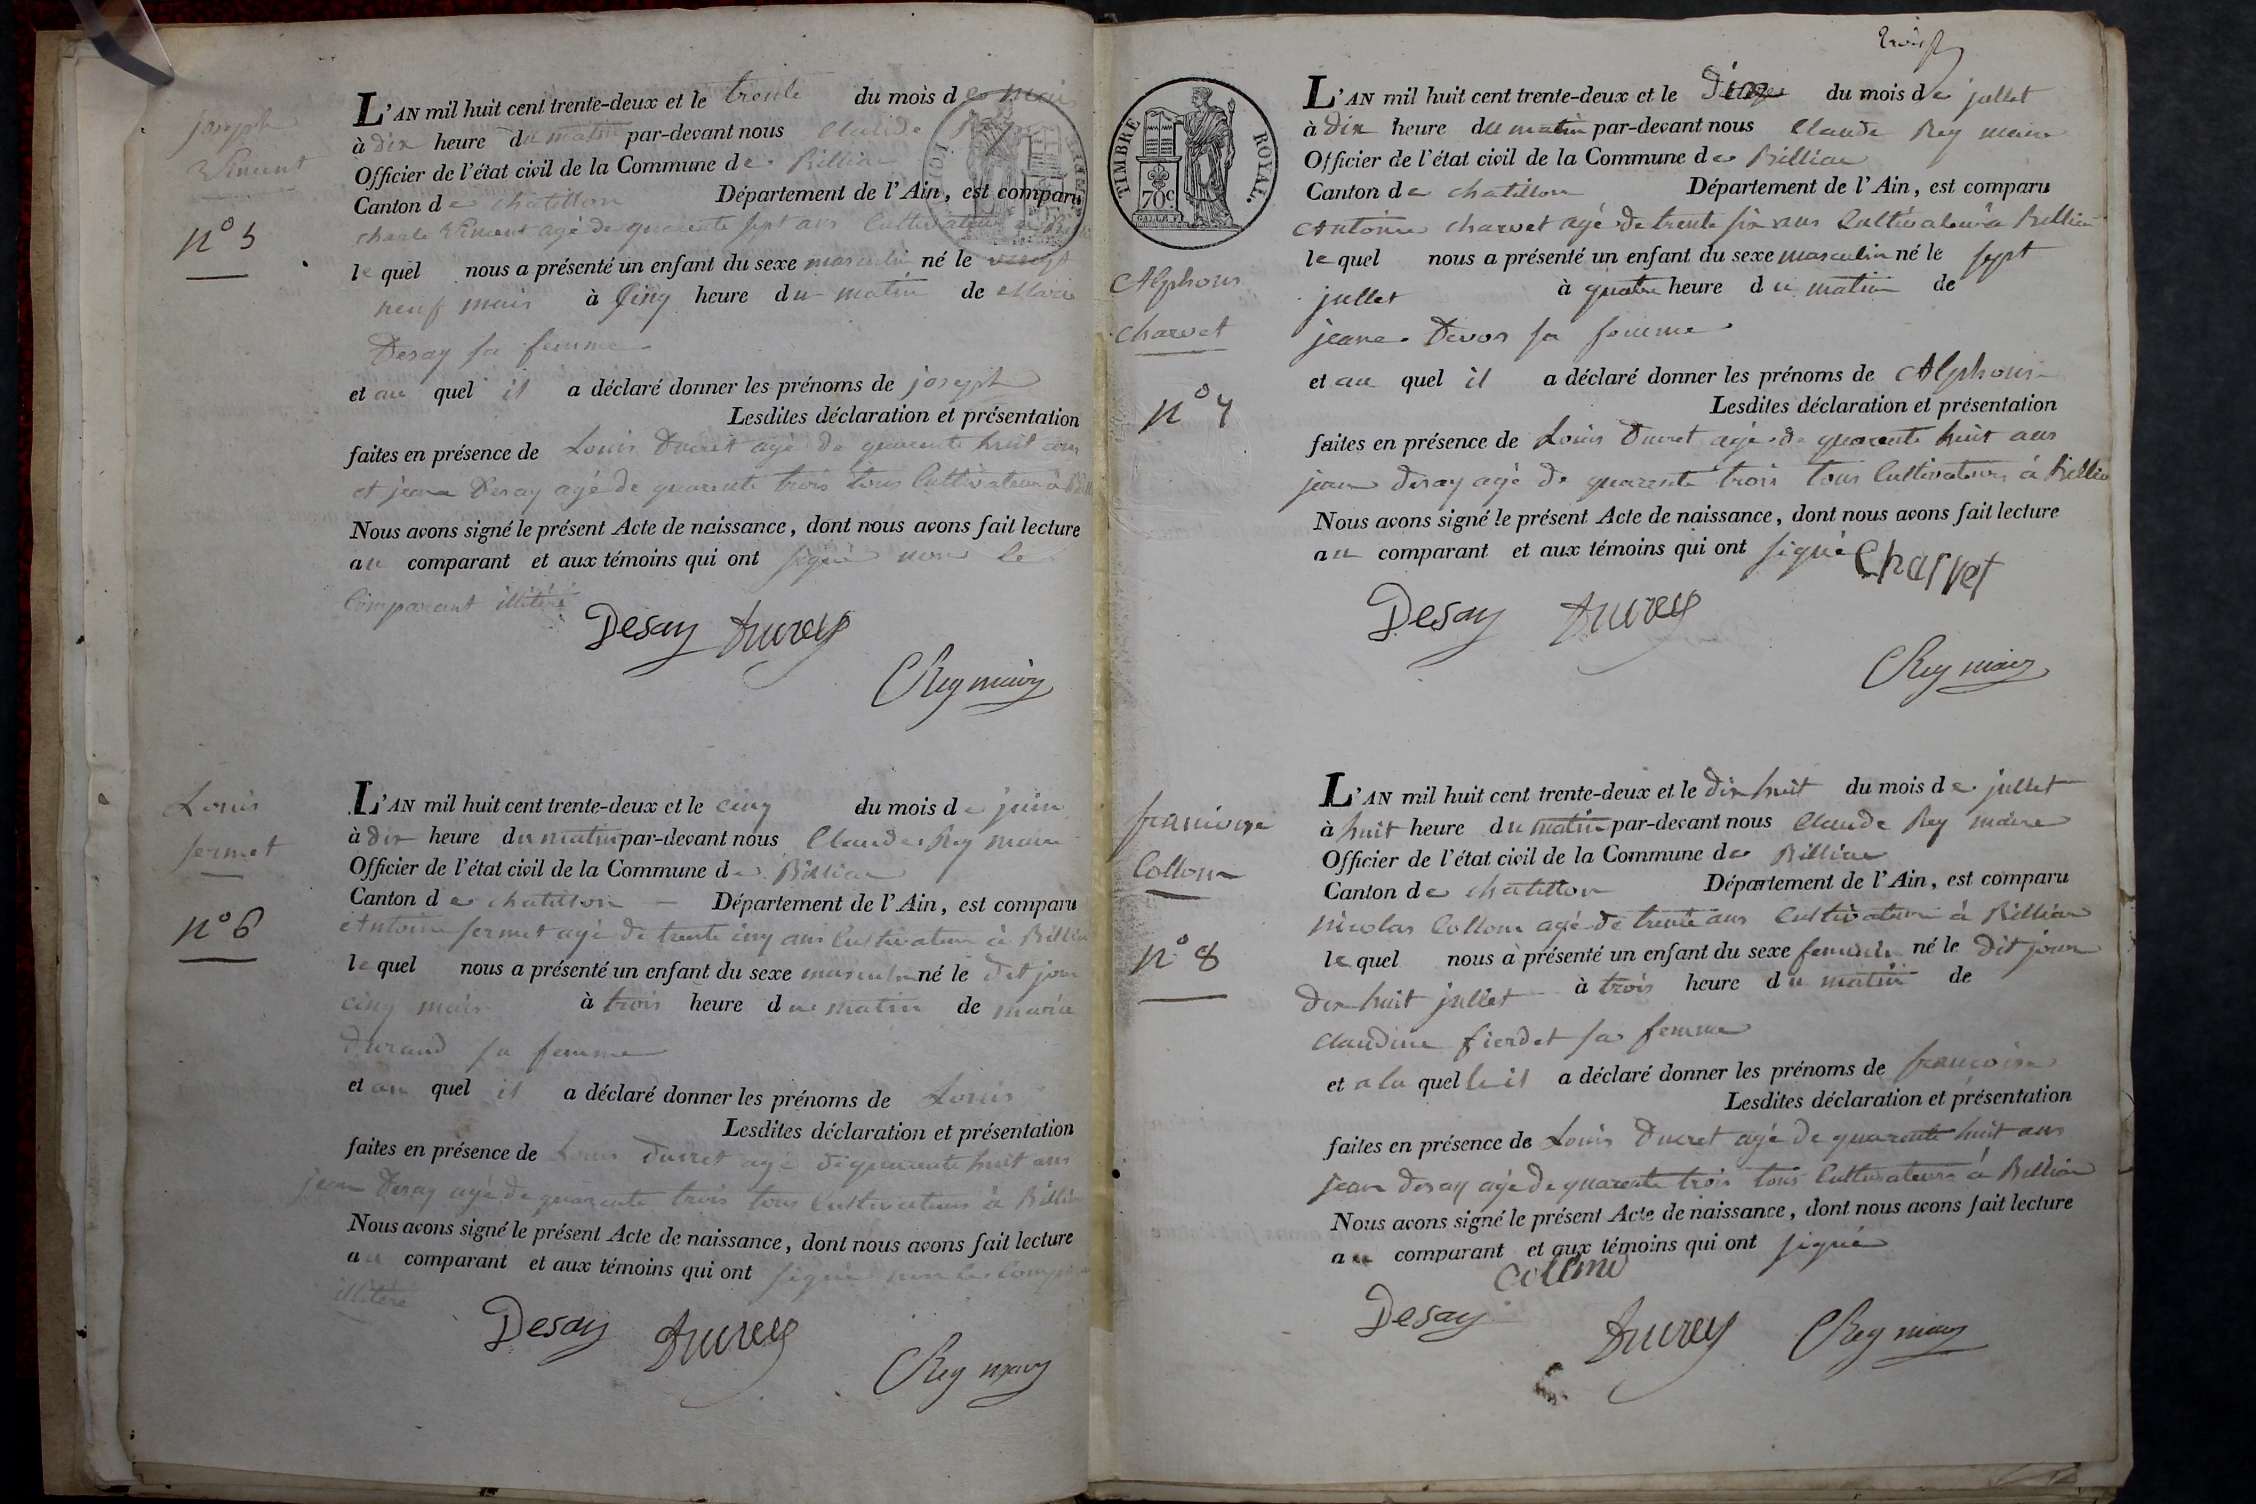 joseph
Vincent
n° 5
L'AN mil huit cent trente-deux et le trente du mois de mai
à dix heure du matin par-devant nous Claude
Officier de l'état civil de la Commune de Billiat
Canton de chatillon Département de l'Ain, est comparu
charle Vincent agé de quarente sept ans Cultivateur à
le quel nous a présenté un enfant du sexe masculin né le vingt
neuf mai à Cinq heure du matin de Marie
Desay sa femme
et au quel il a déclaré donner les prénoms de joseph
Lesdites déclaration et présentation
faites en présence de Louis Ducret agé de quarente huit ans
et jean Desay agé de quarente trois tous Cultivateur à
Nous avons signé le présent Acte de naissance, dont nous avons fait lecture
au comparant et aux témoins qui ont signé non le
Comparant illitéré
Desay Ducret
C Rey maire
Louis
fermet
n° 6
L'AN mil huit cent trente-deux et le cinq du mois de juin
à dix heure du matin par-devant nous Claude Rey maire
Officier de l'état civil de la Commune de Billiat
Canton de chatillon Département de l'Ain, est comparu
Antoine fermet agé de trente cinq ans Cultivateur à Billiat
le quel nous a présenté un enfant du sexe masculin né le dit jour
cinq mai à trois heure du matin de marie
durand sa femme
et au quel il a déclaré donner les prénoms de Louis
Lesdites déclaration et présentation
faites en présence de Louis Ducret agé de quarente huit ans
jean Desay agé de quarente trois tous Cultivateurs à Billiat
Nous avons signé le présent Acte de naissance, dont nous avons fait lecture
au comparant et aux témoins qui ont signé non le
illitéré
Desay Ducret
C Rey maire
TIMBRE ROYAL.
70c
Alphons
charvet
n° 7
L'AN mil huit cent trente-deux et le du mois de jullet
à dix heure du matin par-devant nous Claude Rey maire
Officier de l'état civil de la Commune de Billiat
Canton de chatillon Département de l'Ain, est comparu
Antoine charvet agé de trente six ans Cultivateur à Billiat
le quel nous a présenté un enfant du sexe masculin né le sept
jullet à quatre heure du matin de
jeane Devos sa femme
et au quel il a déclaré donner les prénoms de Alphons
Lesdites déclaration et présentation
faites en présence de Louis Ducret agé de quarente huit ans
jean desay agé de quarente trois tous Cultivateurs à Billiat
Nous avons signé le présent Acte de naissance, dont nous avons fait lecture
au comparant et aux témoins qui ont signé Charvet
Desay Ducret
C Rey maire
francoise
Collom
n° 8
L'AN mil huit cent trente-deux et le dix huit du mois de jullet
à huit heure du matin par-devant nous Claude Rey maire
Officier de l'état civil de la Commune de Billiat
Canton de chatillon Département de l'Ain, est comparu
nicolas Collom agé de trente ans Cultivateur à Billiat
le quel nous à présenté un enfant du sexe feminin né le dit jour
dix huit jullet à trois heure du matin de
claudine fierdet sa femme
et a la quel le il a déclaré donner les prénoms de francoise
Lesdites déclaration et présentation
faites en présence de Louis Ducret agé de quarente huit ans
jean desay agé de quarente trois tous Cultivateurs à Billiat
Nous avons signé le présent Acte de naissance, dont nous avons fait lecture
au comparant et aux témoins qui ont signé
Desay Ducret C Rey maire